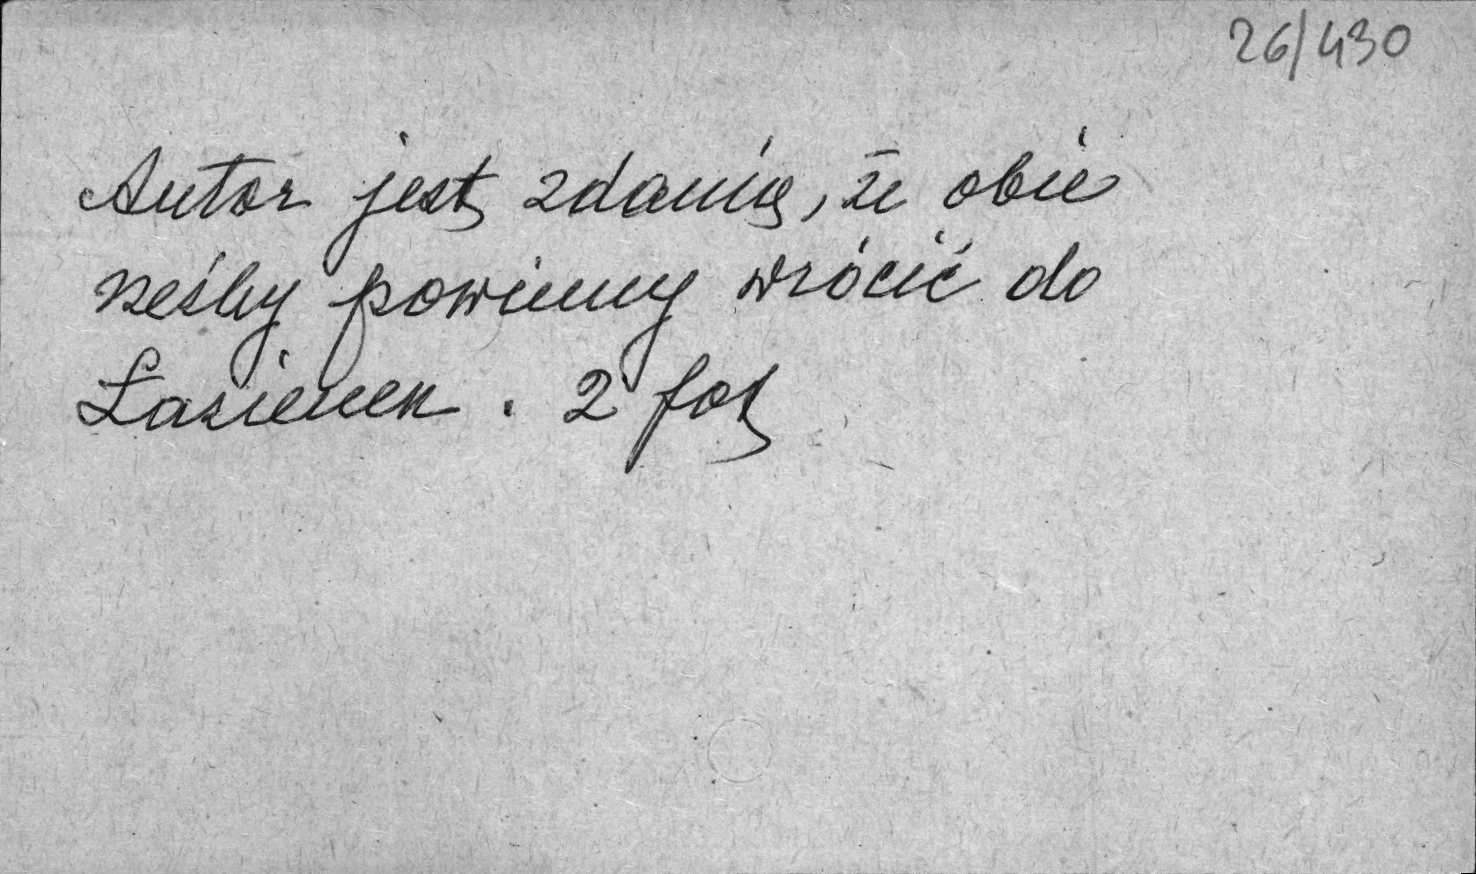 26/430
Autor jest zdania, że obie
rzeźby powinny wrócić do
Łazienek. 2 fot